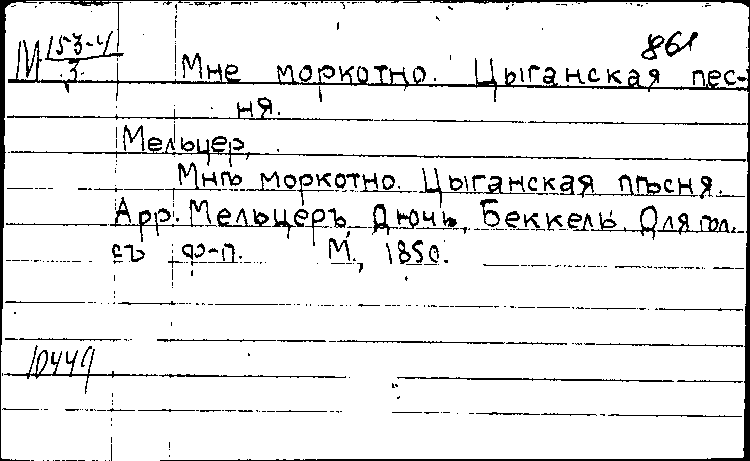 861
М 153-4
3
Мне моркотно. Цыганская пес-
ня.
Мельцер,
Мнѣ моркотно. Цыганская пѣсня.
Арр. Мельцеръ, Дючь, Беккель. Для гол.
съ ф-п. М., 1850.
10449